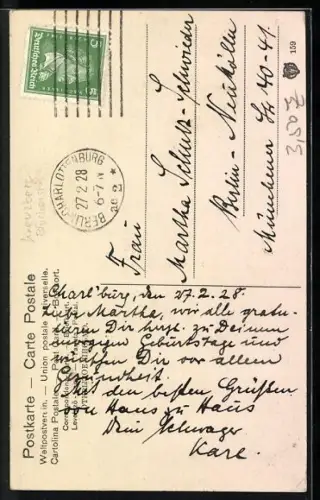 Postkarte — Carte Postale
Weltpostverein. — Union postale universelle.
5 Deutsches Reich 5
BERLIN-CHARLOTTENBURG
27.2.28
6-7 N
2
Frau
Martha Schulz-Schwieder
Berlin-Neukölln
Münchener Str 40-41.
159
3,50
Charl'burg, den 27.2.28.
Liebe Martha, wir alle gratu-
lieren Dir herzl. zu Deinem
morgigen Geburtstage und
wünschen Dir vor allem
Gesundheit.
Mit den besten Grüßen
von Haus zu Haus
Dein Schwager
Karl.